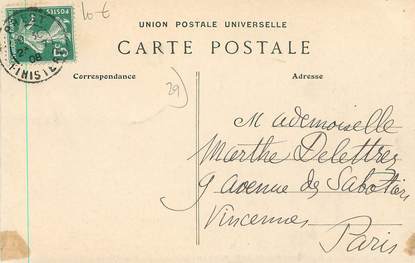 10 €
UNION POSTALE UNIVERSELLE
CARTE POSTALE
Correspondance
Adresse
POSTES
5c
08
FINISTERE
29
Mademoiselle
Marthe Delettrez
9 avenue des Sabotiers
Vincennes
Paris